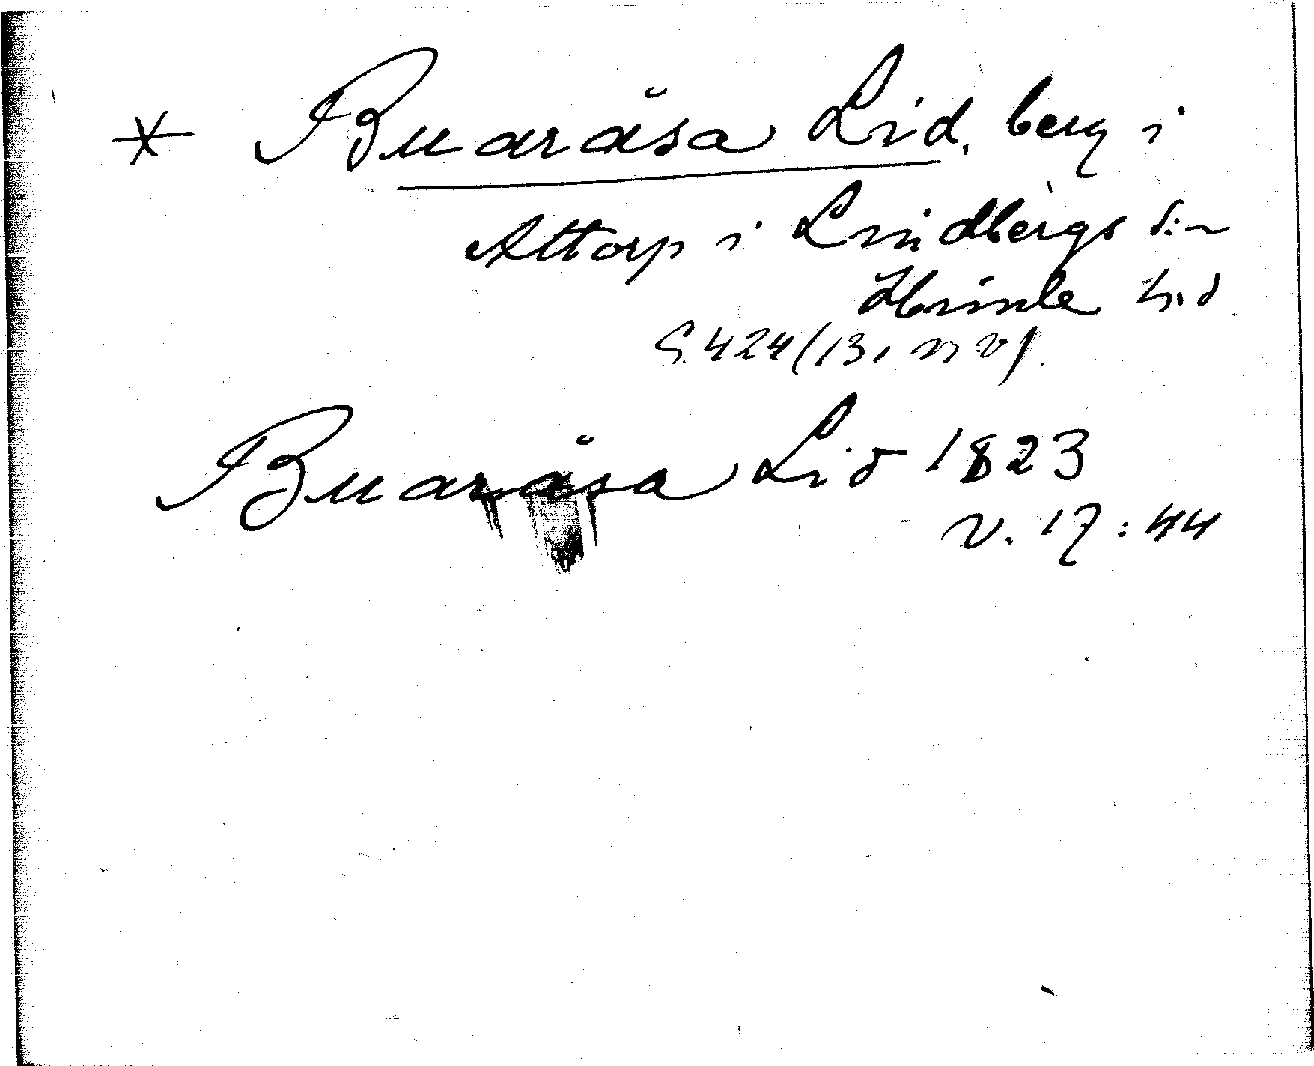 * Buaråsa Lid, berg i
Attorp i Lindbergs s:n
Himle hd
G. 424 (13, nv).
Buaråsa Lid 1823
v. 17:44